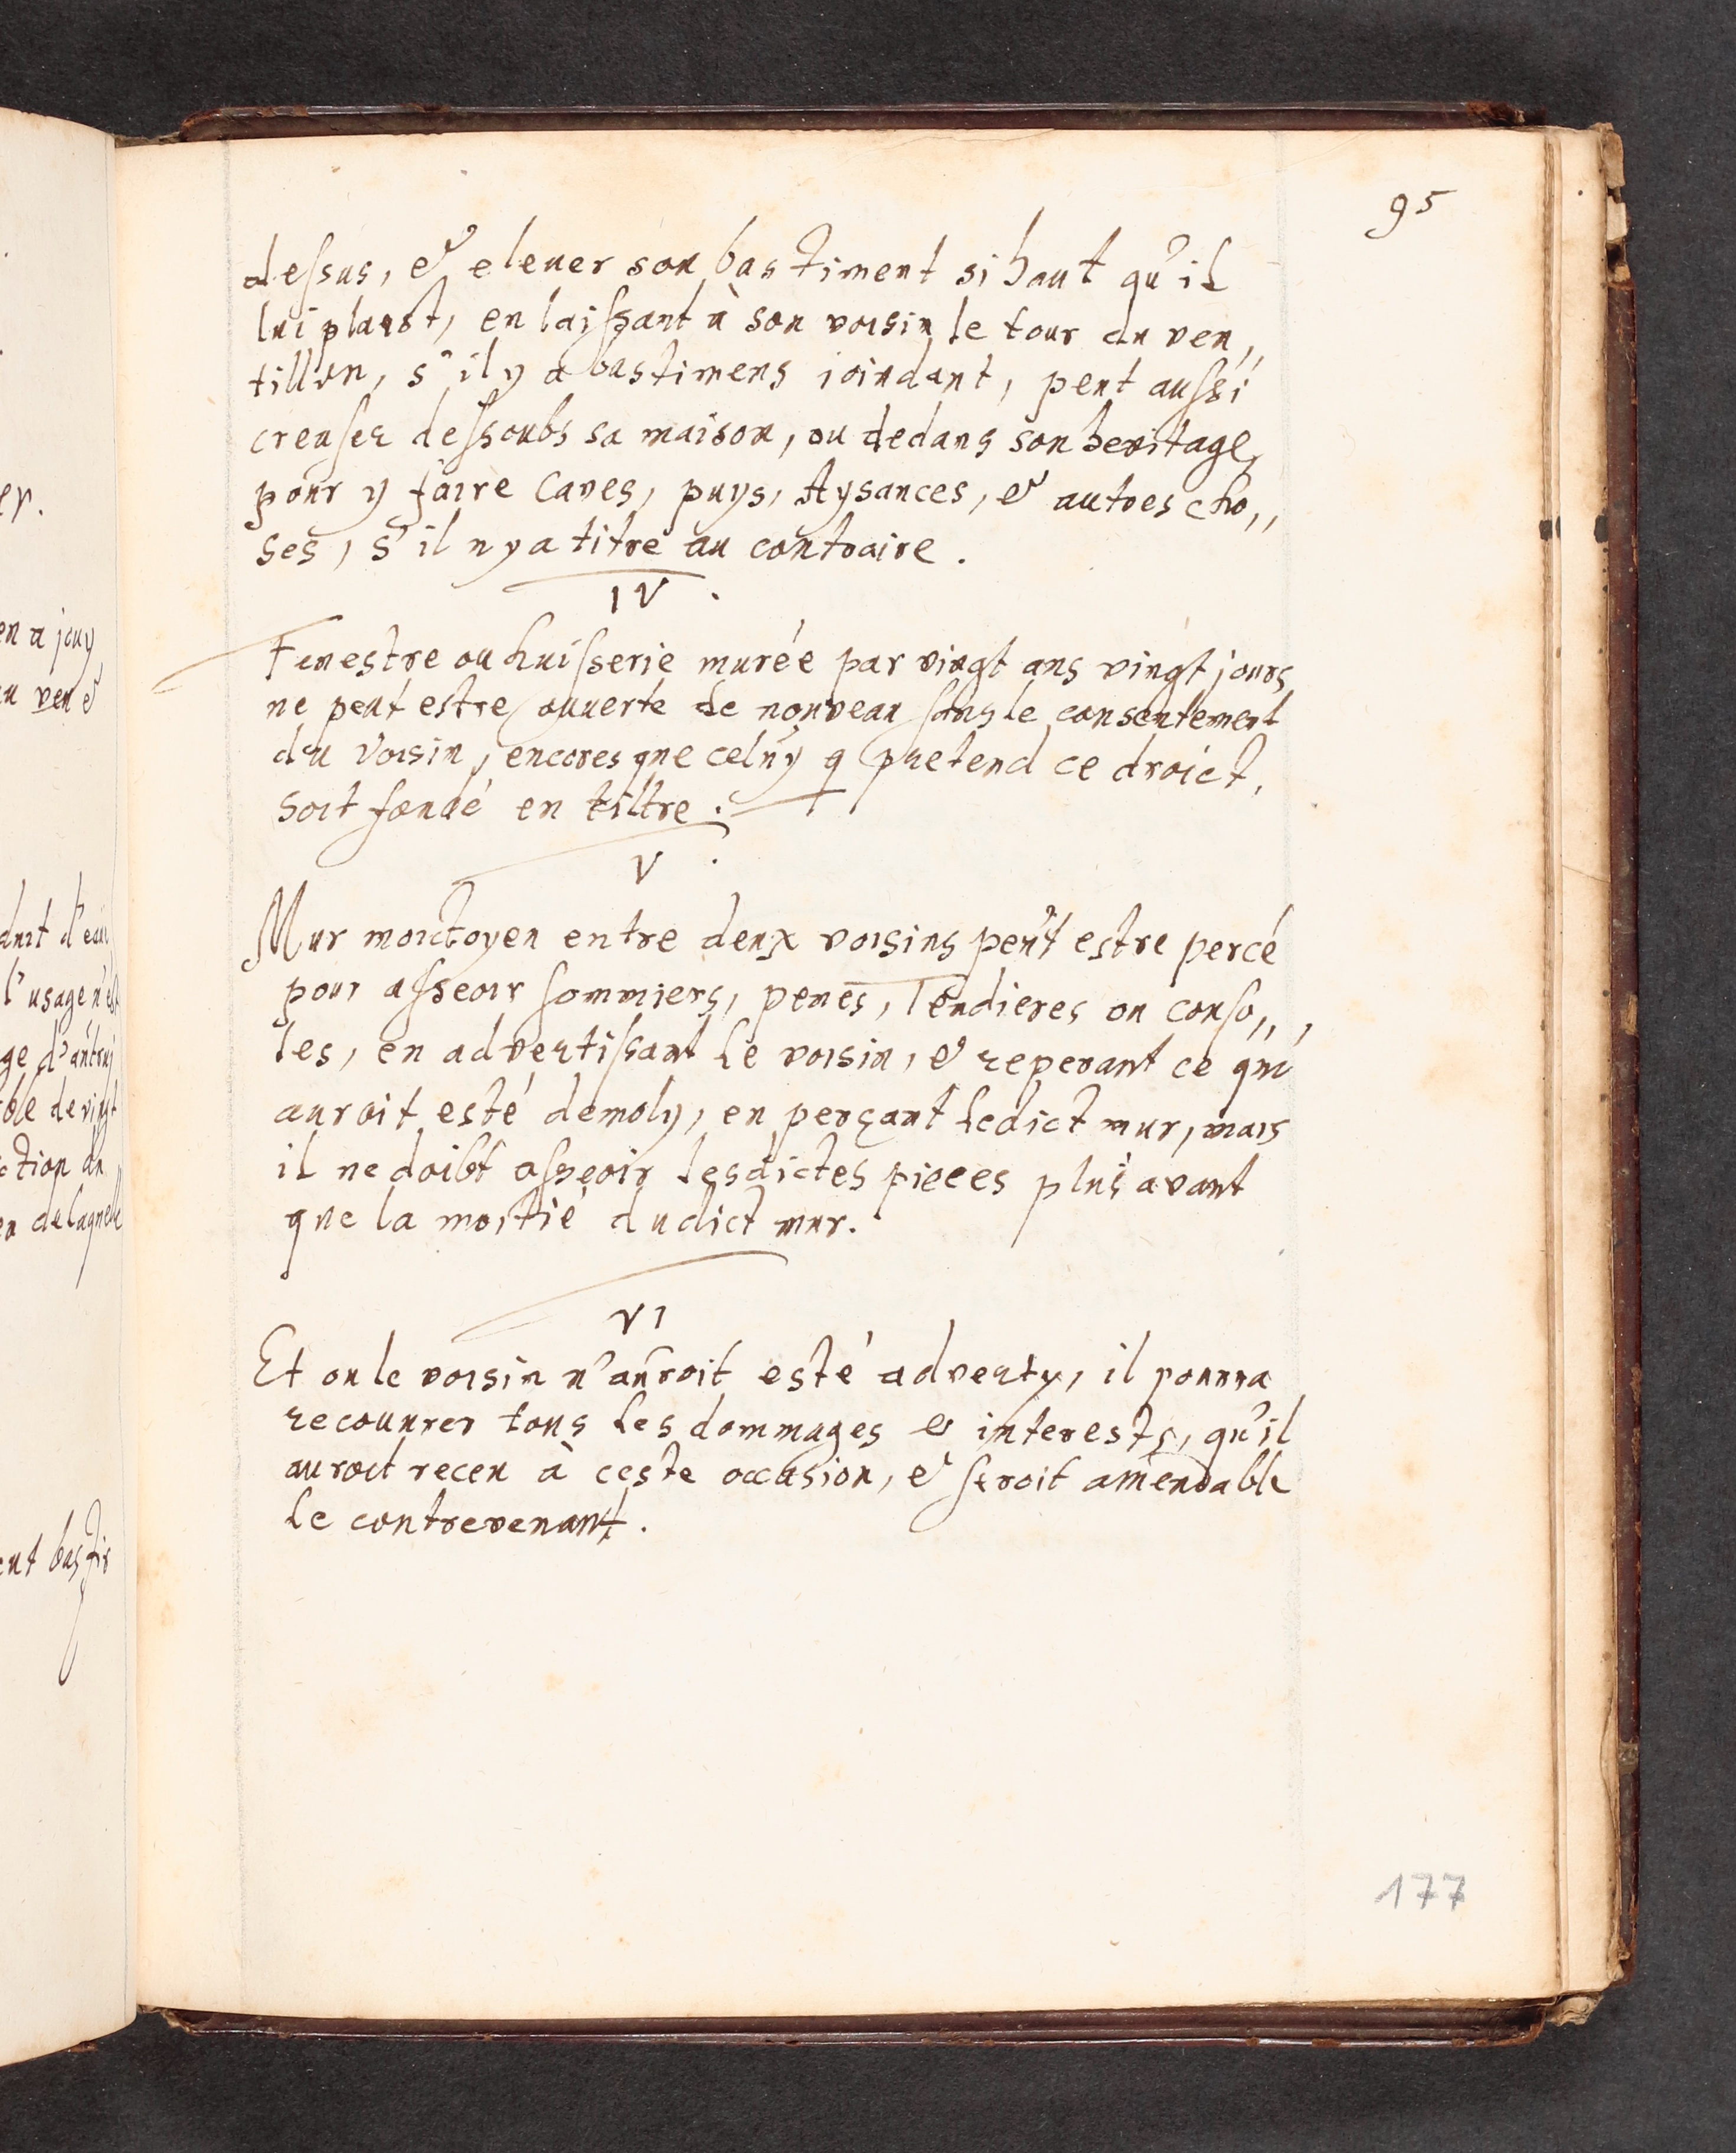 95
dessus, & elever son bastiment si haut qu'il
lui plaist, en laissant à son voisin le tour du ven,,
tillon, s'il y a bastimens joindant, peut aussi
creuser dessoubs sa maison, ou dedans son heritage,
pour y faire Caves, puys, Aysances, & autres cho,,
ses, s'il n'y a titre au contraire.
IV.
Fenestre ou huisserie murée par vingt ans vingt jours
ne peut estre ouuerte de nouveau sans le consentement
du Voisin, encores que celuy q pretend ce droict,
soit fondé en tiltre.
V.
Mur moictoyen entre deux voisins peut estre percé
pour asseoir sommiers, penes, Tendieres ou conso,,
les, en advertissant le voisin, & reperant ce qui
auroit esté demoly, en perçant ledict mur, mais
il ne doibt asseoir lesdictes pieces plus avant
que la moitié dudict mur.
VI
Et ou le voisin n'auroit esté adverty, il pourra
recouurer tous les dommages & interests, qu'il
auroit receu à ceste occasion, & seroit amendable
le contrevenant.
177
er.
en a jouy
au ven &
duit d'eau
l'usage n'est
ge d'autruj
de vingt
ction du
de laquelle
ent bastir